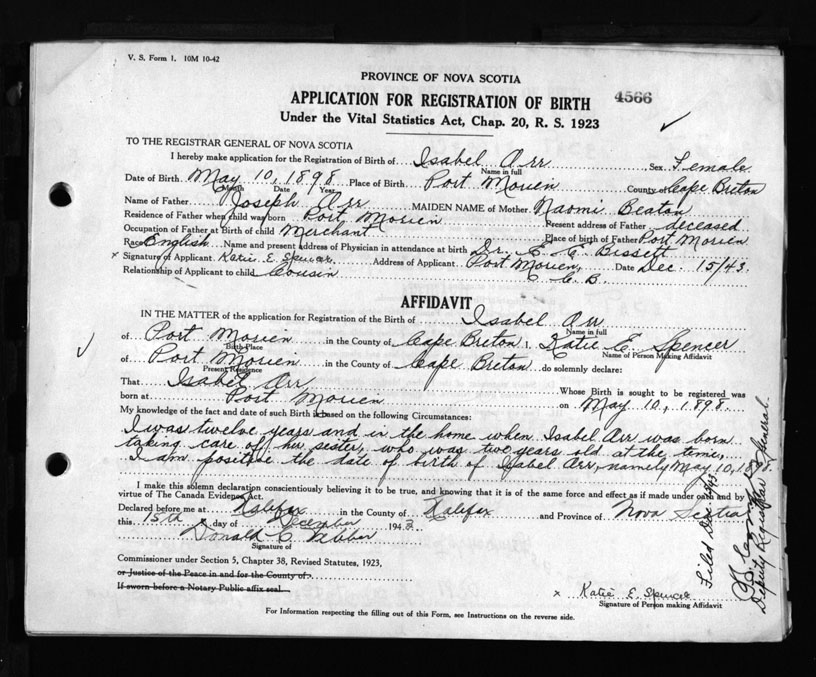 V. S. Form 1. 10M 10-42
PROVINCE OF NOVA SCOTIA
APPLICATION FOR REGISTRATION OF BIRTH 4566
Under the Vital Statistics Act, Chap. 20, R. S. 1923
TO THE REGISTRAR GENERAL OF NOVA SCOTIA
I hereby make application for the Registration of Birth of Isabel Orr Sex Female
Name in full
Date of Birth May 10, 1898 Place of Birth Port Morien County of Cape Breton
Month Date Year
Name of Father Joseph Orr MAIDEN NAME of Mother Naomi Beaton
Residence of Father when child was born Port Morien Present address of Father deceased
Occupation of Father at Birth of Child Merchant Place of birth of Father Port Morien
Race English Name and present address of Physician in attendance at birth Dr. E. E. Bissett
x Signature of Applicant Katie E. Spencer Address of Applicant Port Morien, Date Dec. 15/43.
Relationship of Applicant to child Cousin C. B.
AFFIDAVIT
IN THE MATTER of the application for Registration of the Birth of Isabel Orr
Name in full
of Port Morien in the County of Cape Breton I, Katie E. Spencer
Birth Place Name of Person Making Affidavit
of Port Morien in the County of Cape Breton do solemnly declare:
Present Residence
That Isabel Orr Whose Birth is sought to be registered was
born at Port Morien on May 10, 1898
My knowledge of the fact and date of such Birth is based on the following Circumstances:
I was twelve years and in the home when Isabel Orr was born
taking care of her sister, who was two years old at the time,
I am positive the date of birth of Isabel Orr, namely May 10, 1898.
I make this solemn declaration conscientiously believing it to be true, and knowing that it is of the same force and effect as if made under oath and by
virtue of The Canada Evidence Act.
Declared before me at Halifax in the County of Halifax and Province of Nova Scotia
this 15th day of December 1943
Donald C.
Signature of
Commissioner under Section 5, Chapter 38, Revised Statutes, 1923,
or Justice of the Peace in and for the County of
If sworn before a Notary Public affix seal.
x Katie E. Spencer
Signature of Person making Affidavit
For Information respecting the filling out of this Form, see Instructions on the reverse side.
Filed Dec
Deputy Registrar General